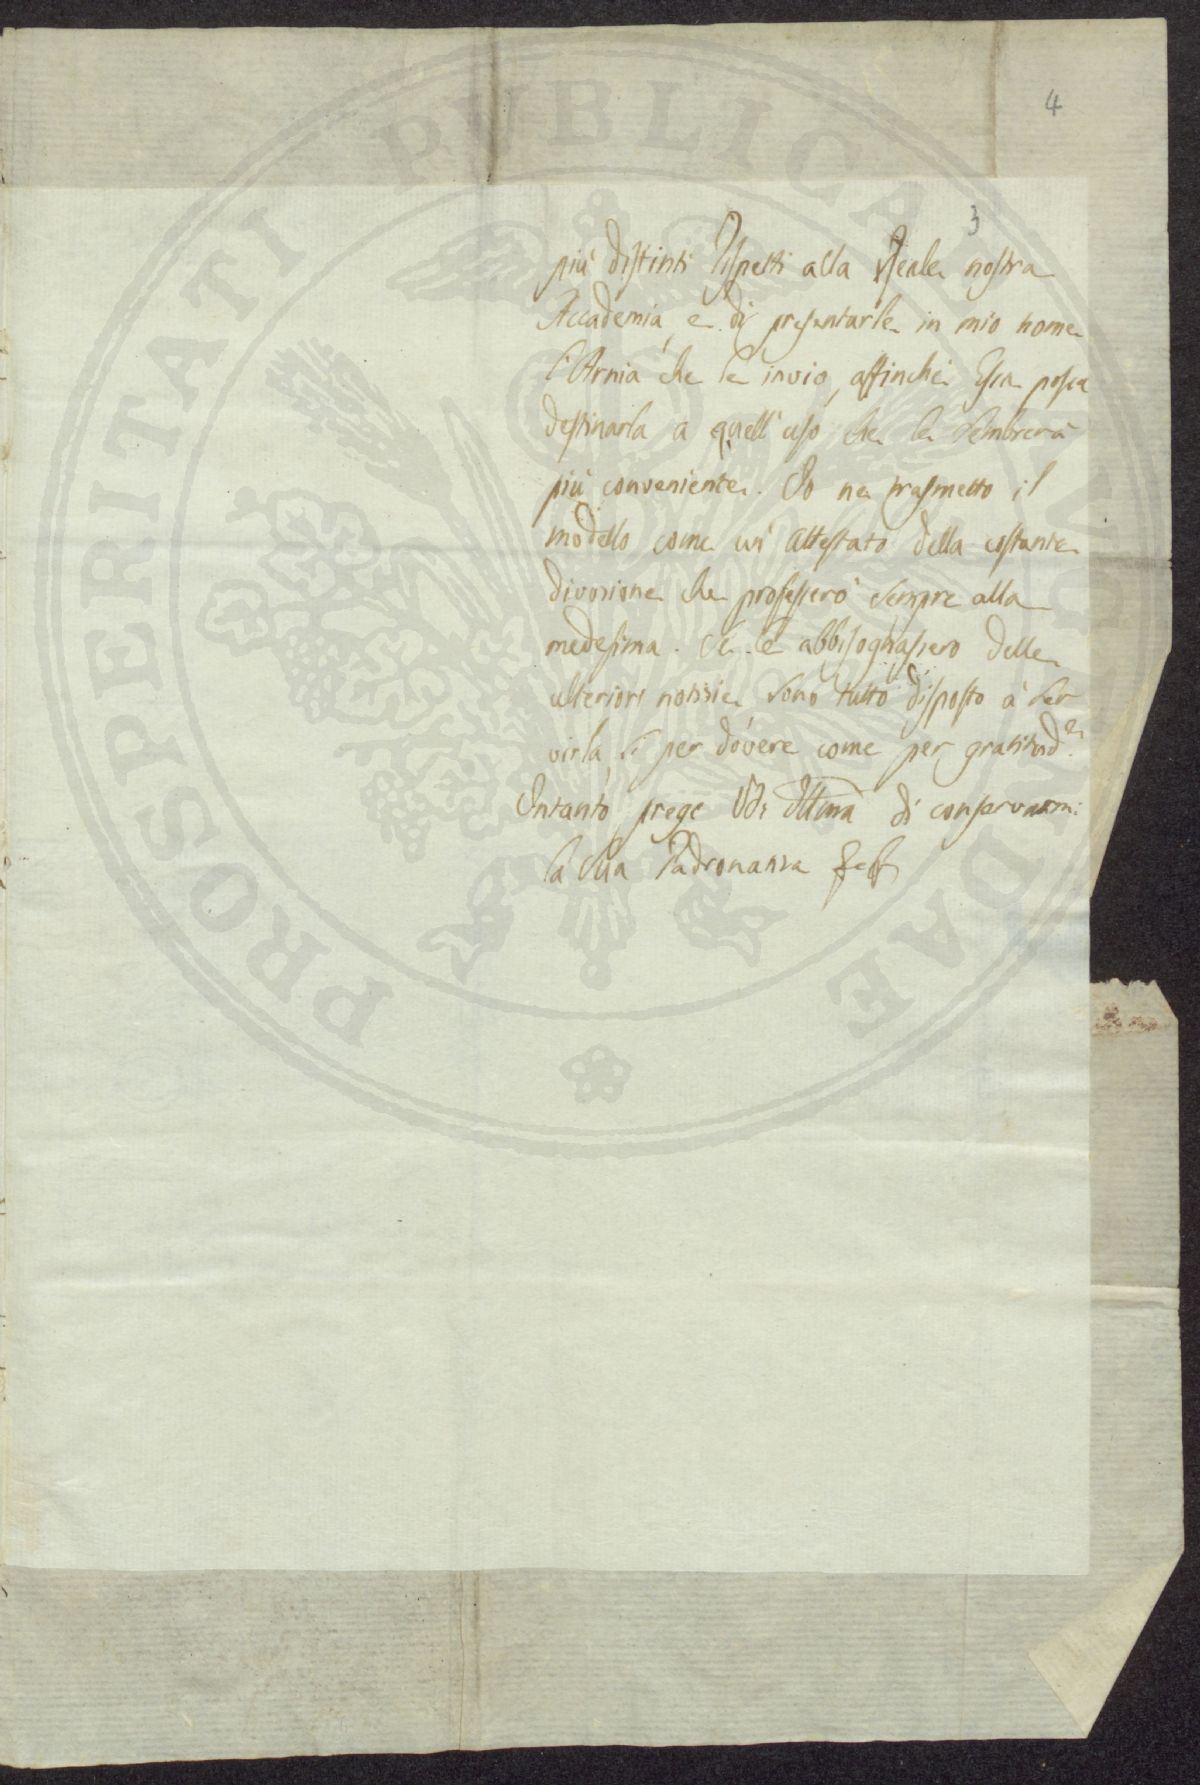 4
3
PROSPERITATI PUBLICAE AUGENDAE
più distinti Rispetti alla Reale nostra
Accademia, e di presentarle in mio nome
l'Arnia che le invio, affinché Essa possa
destinarla a quell'uso che le sembrerà
più conveniente. Io ne trasmetto il
modello come un attestato della costante
divozione che professerò sempre alla
medesima. Se le abbisognassero delle
ulteriori notizie sono tutto disposto à ser
virla sì per dovere come per gratitud.e
Intanto prego VS. Ill.ma di conservarmi
la sua Padronanza